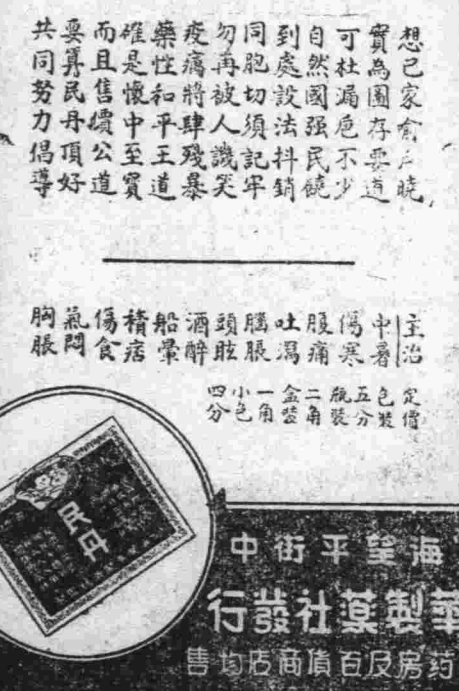 想已家俞戶曉
實為圖存要道
可杜漏卮不少
自然國强民饒
到處設法抖銷
同胞切須記牢
勿再被人譏笑
疫癘將肆殘暴
藥性和平王道
確是懷中至寶
而且售價公道
要算民丹頂好
共同努力倡導
主治
中暑
傷寒
腹痛
吐瀉
腦脹
頭眩
酒醉
船暈
積痞
傷食
氣悶
胸脹
定價
包裝
五分
瓶裝
二角
盒裝
一角
小包
四分
民丹
海望平街中
華製藥社發行
药房及百貨商店均售